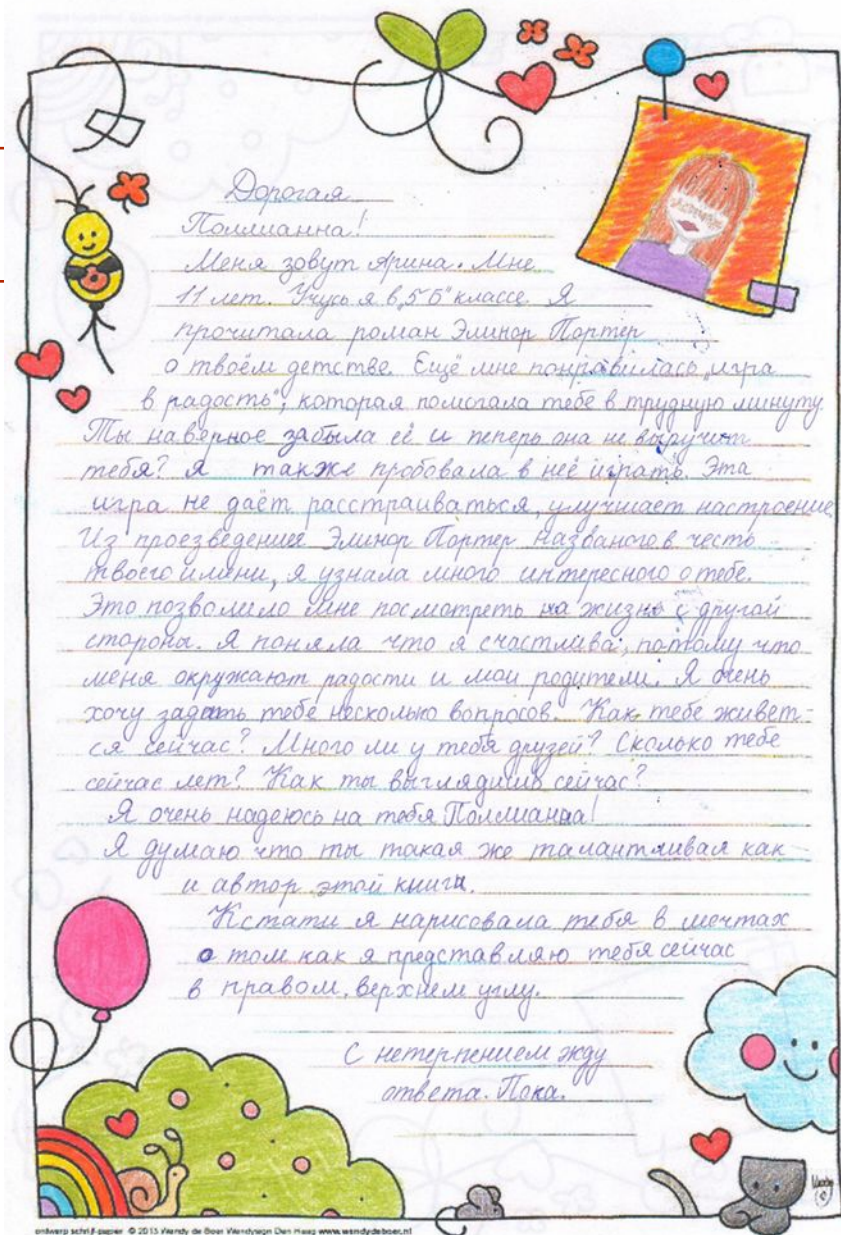 Дорогая
Поллианна!
Меня зовут Арина. Мне
11 лет. Учусь я в „5 Б" классе. Я
прочитала роман Элинор Портер
о твоём детстве. Ещё мне понравилась „игра
в радость", которая помогала тебе в трудную минуту.
Ты наверное забыла её и теперь она не выручит
тебя? Я также пробовала в неё играть. Эта
игра не даёт расстраиваться, улучшает настроение.
Из проезведения Элинор Портер названого в честь
твоего имени, я узнала много интересного о тебе.
Это позволило мне посмотреть на жизнь с другой
сторона. Я поняла что я счастлива, потому что
меня окружают радости и мои родители. Я очень
хочу задать тебе несколько вопросов. Как тебе живет-
ся сейчас? Много ли у тебя друзей? Сколько тебе
сейчас лет? Как ты выглядишь сейчас?
Я очень надеюсь на тебя Поллианна!
Я думаю что ты такая же талантливая как
и автор этой книги.
Кстати я нарисовала тебя в мечтах
о том как я представляю тебя сейчас
в правом, верхнем углу.
С нетерпением жду
ответа. Пока.
ontwerp schrijf-papier © 2013 Wendy de Boer Wendyswgn Den Haag www.wendydeboer.nl